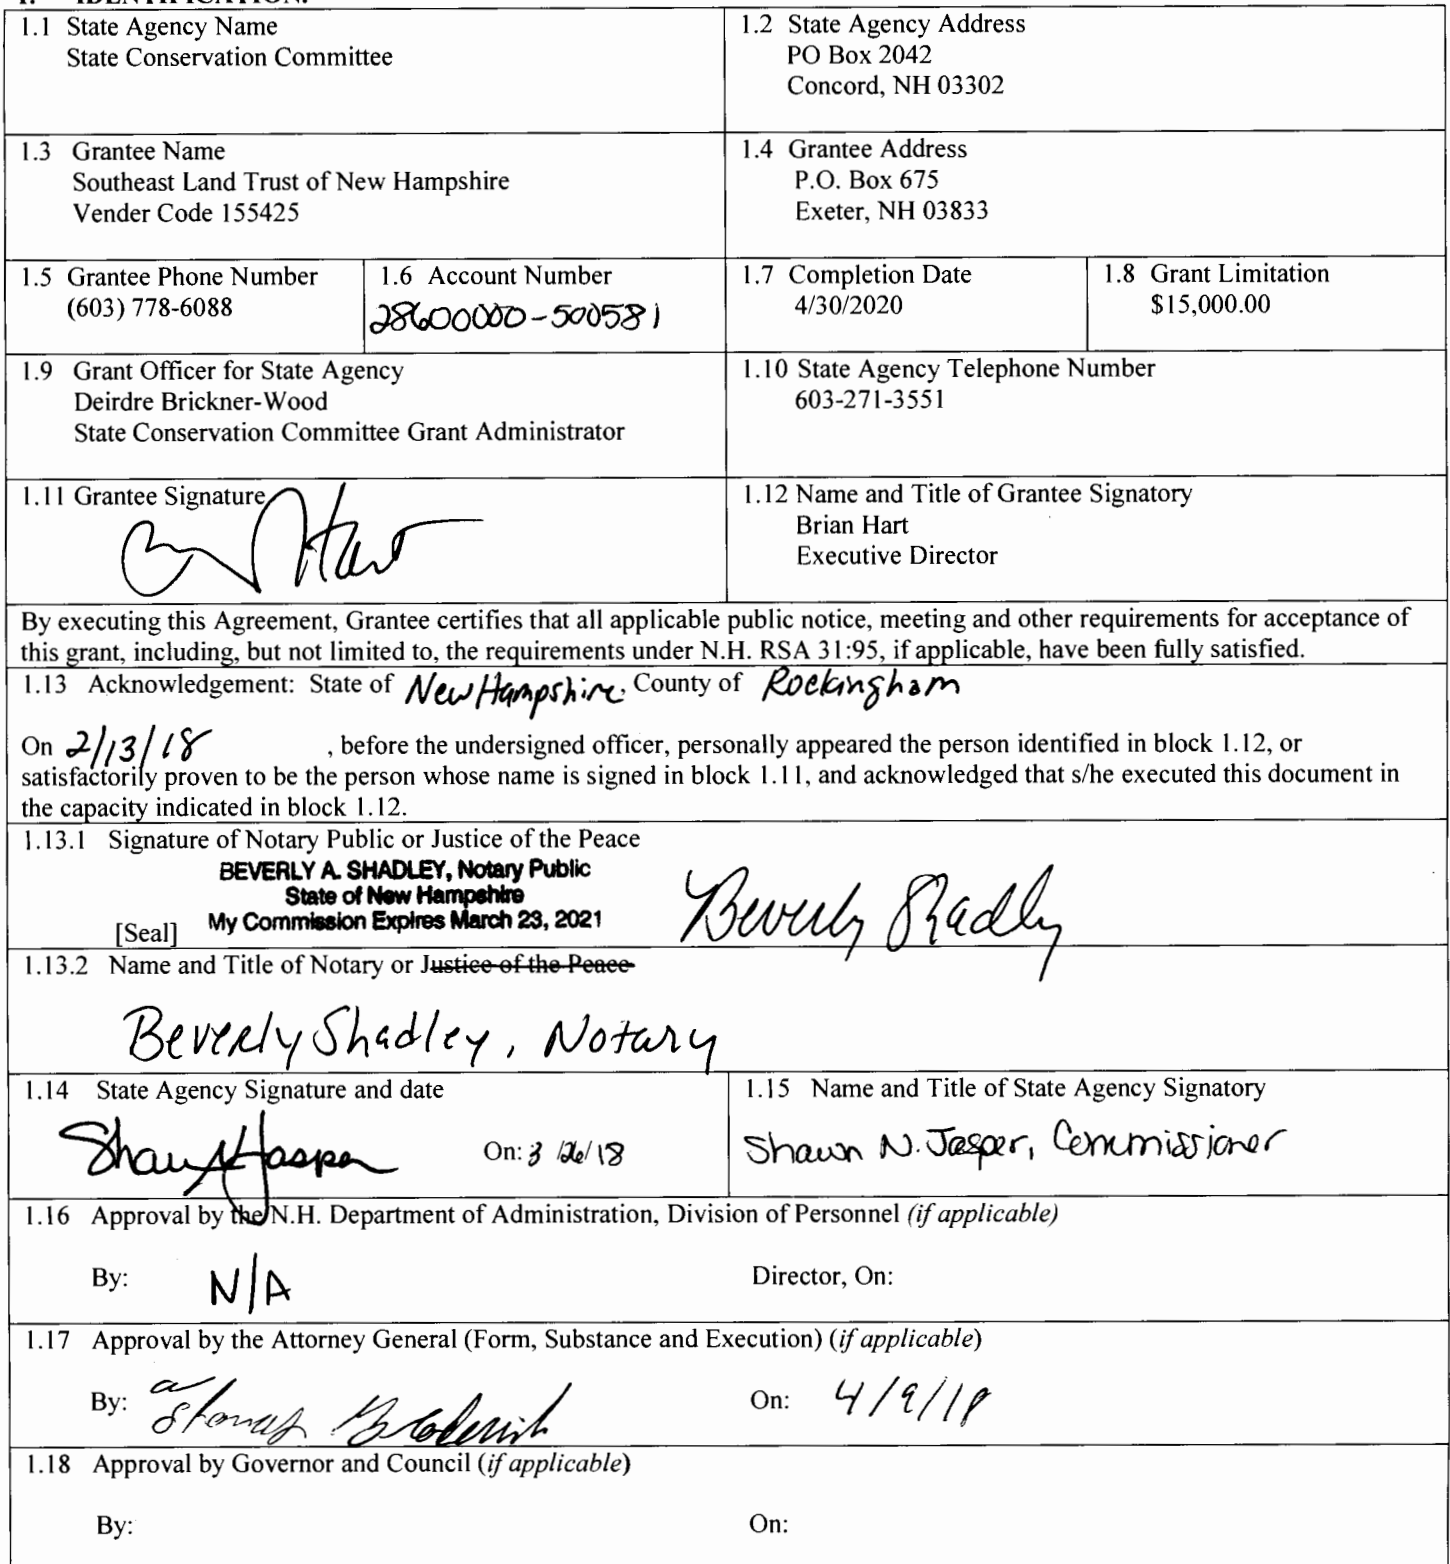 1. IDENTIFICATION.
1.1 State Agency Name
State Conservation Committee
1.2 State Agency Address
PO Box 2042
Concord, NH 03302
1.3 Grantee Name
Southeast Land Trust of New Hampshire
Vender Code 155425
1.4 Grantee Address
P.O. Box 675
Exeter, NH 03833
1.5 Grantee Phone Number
(603) 778-6088
1.6 Account Number
28600000-500581
1.7 Completion Date
4/30/2020
1.8 Grant Limitation
$15,000.00
1.9 Grant Officer for State Agency
Deirdre Brickner-Wood
State Conservation Committee Grant Administrator
1.10 State Agency Telephone Number
603-271-3551
1.11 Grantee Signature
Hart
1.12 Name and Title of Grantee Signatory
Brian Hart
Executive Director
By executing this Agreement, Grantee certifies that all applicable public notice, meeting and other requirements for acceptance of
this grant, including, but not limited to, the requirements under N.H. RSA 31:95, if applicable, have been fully satisfied.
1.13 Acknowledgement: State of New Hampshire, County of Rockingham
On 2/13/18 , before the undersigned officer, personally appeared the person identified in block 1.12, or
satisfactorily proven to be the person whose name is signed in block 1.11, and acknowledged that s/he executed this document in
the capacity indicated in block 1.12.
1.13.1 Signature of Notary Public or Justice of the Peace
BEVERLY A. SHADLEY, Notary Public
State of New Hampshire
[Seal] My Commission Expires March 23, 2021
Beverly Shadley
1.13.2 Name and Title of Notary or Justice of the Peace
Beverly Shadley, Notary
1.14 State Agency Signature and date
Shawn N Jasper On: 3/26/18
1.15 Name and Title of State Agency Signatory
Shawn N. Jasper, Commissioner
1.16 Approval by the N.H. Department of Administration, Division of Personnel (if applicable)
By: N/A Director, On:
1.17 Approval by the Attorney General (Form, Substance and Execution) (if applicable)
By: On: 4/9/18
1.18 Approval by Governor and Council (if applicable)
By: On: